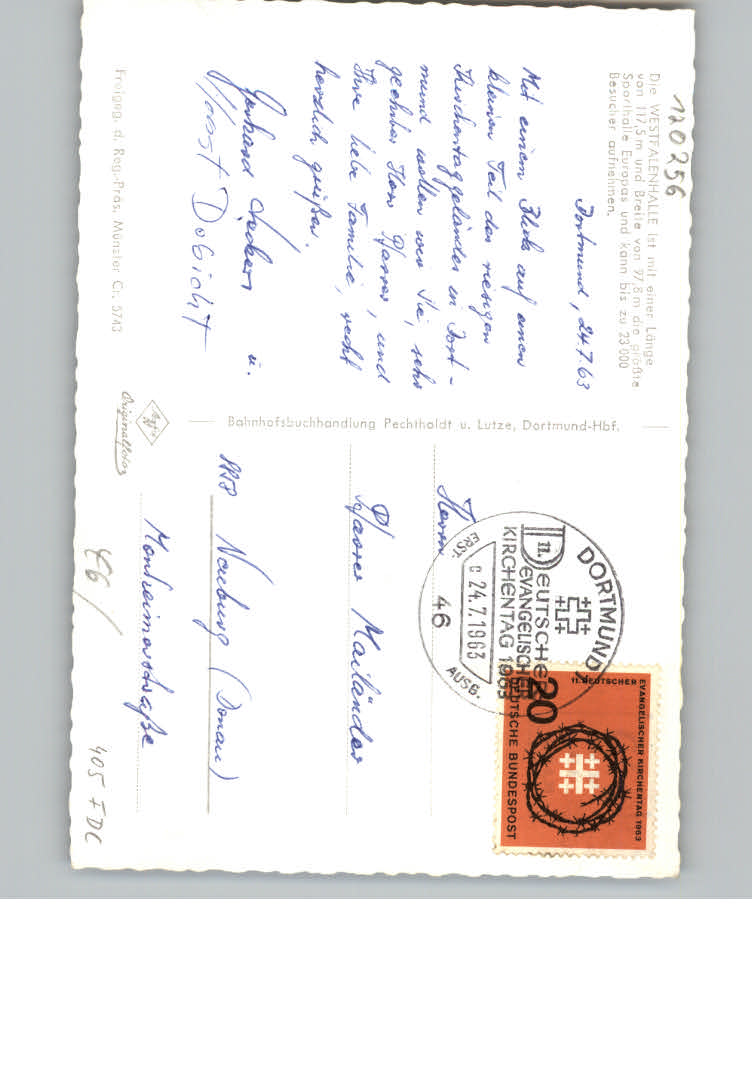 120256
Die WESTFALENHALLE ist mit einer Länge
von 117,5 m und Breite von 97,8 m die größte
Sporthalle Europas und kann bis zu 23 000
Besucher aufnehmen.
Dortmund, 24.7.63
Mit einem Blick auf einen
kleinen Teil des riesigen
Kirchentaggeländes in Dort-
mund wollen wir Sie, sehr
geehrter Herr Pfarrer, und
Ihre liebe Familie, recht
herzlich grüßen.
Gerhard u.
Horst Dobicht
Freigeg. d. Reg.-Präs. Münster C. 5743
Bahnhofsbuchhandlung Pechtholdt u. Lutze, Dortmund-Hbf.
Originalfoto
DORTMUND
11. DEUTSCHER
EVANGELISCHER
KIRCHENTAG 1963
c 24.7.1963
ERST-
AUSG.
46
11. DEUTSCHER EVANGELISCHER KIRCHENTAG 1963
20
DEUTSCHE BUNDESPOST
Herrn
Pfarrer Mailänder
8858 Neuburg (Donau)
Monheimerstraße
€6/
405 FDC